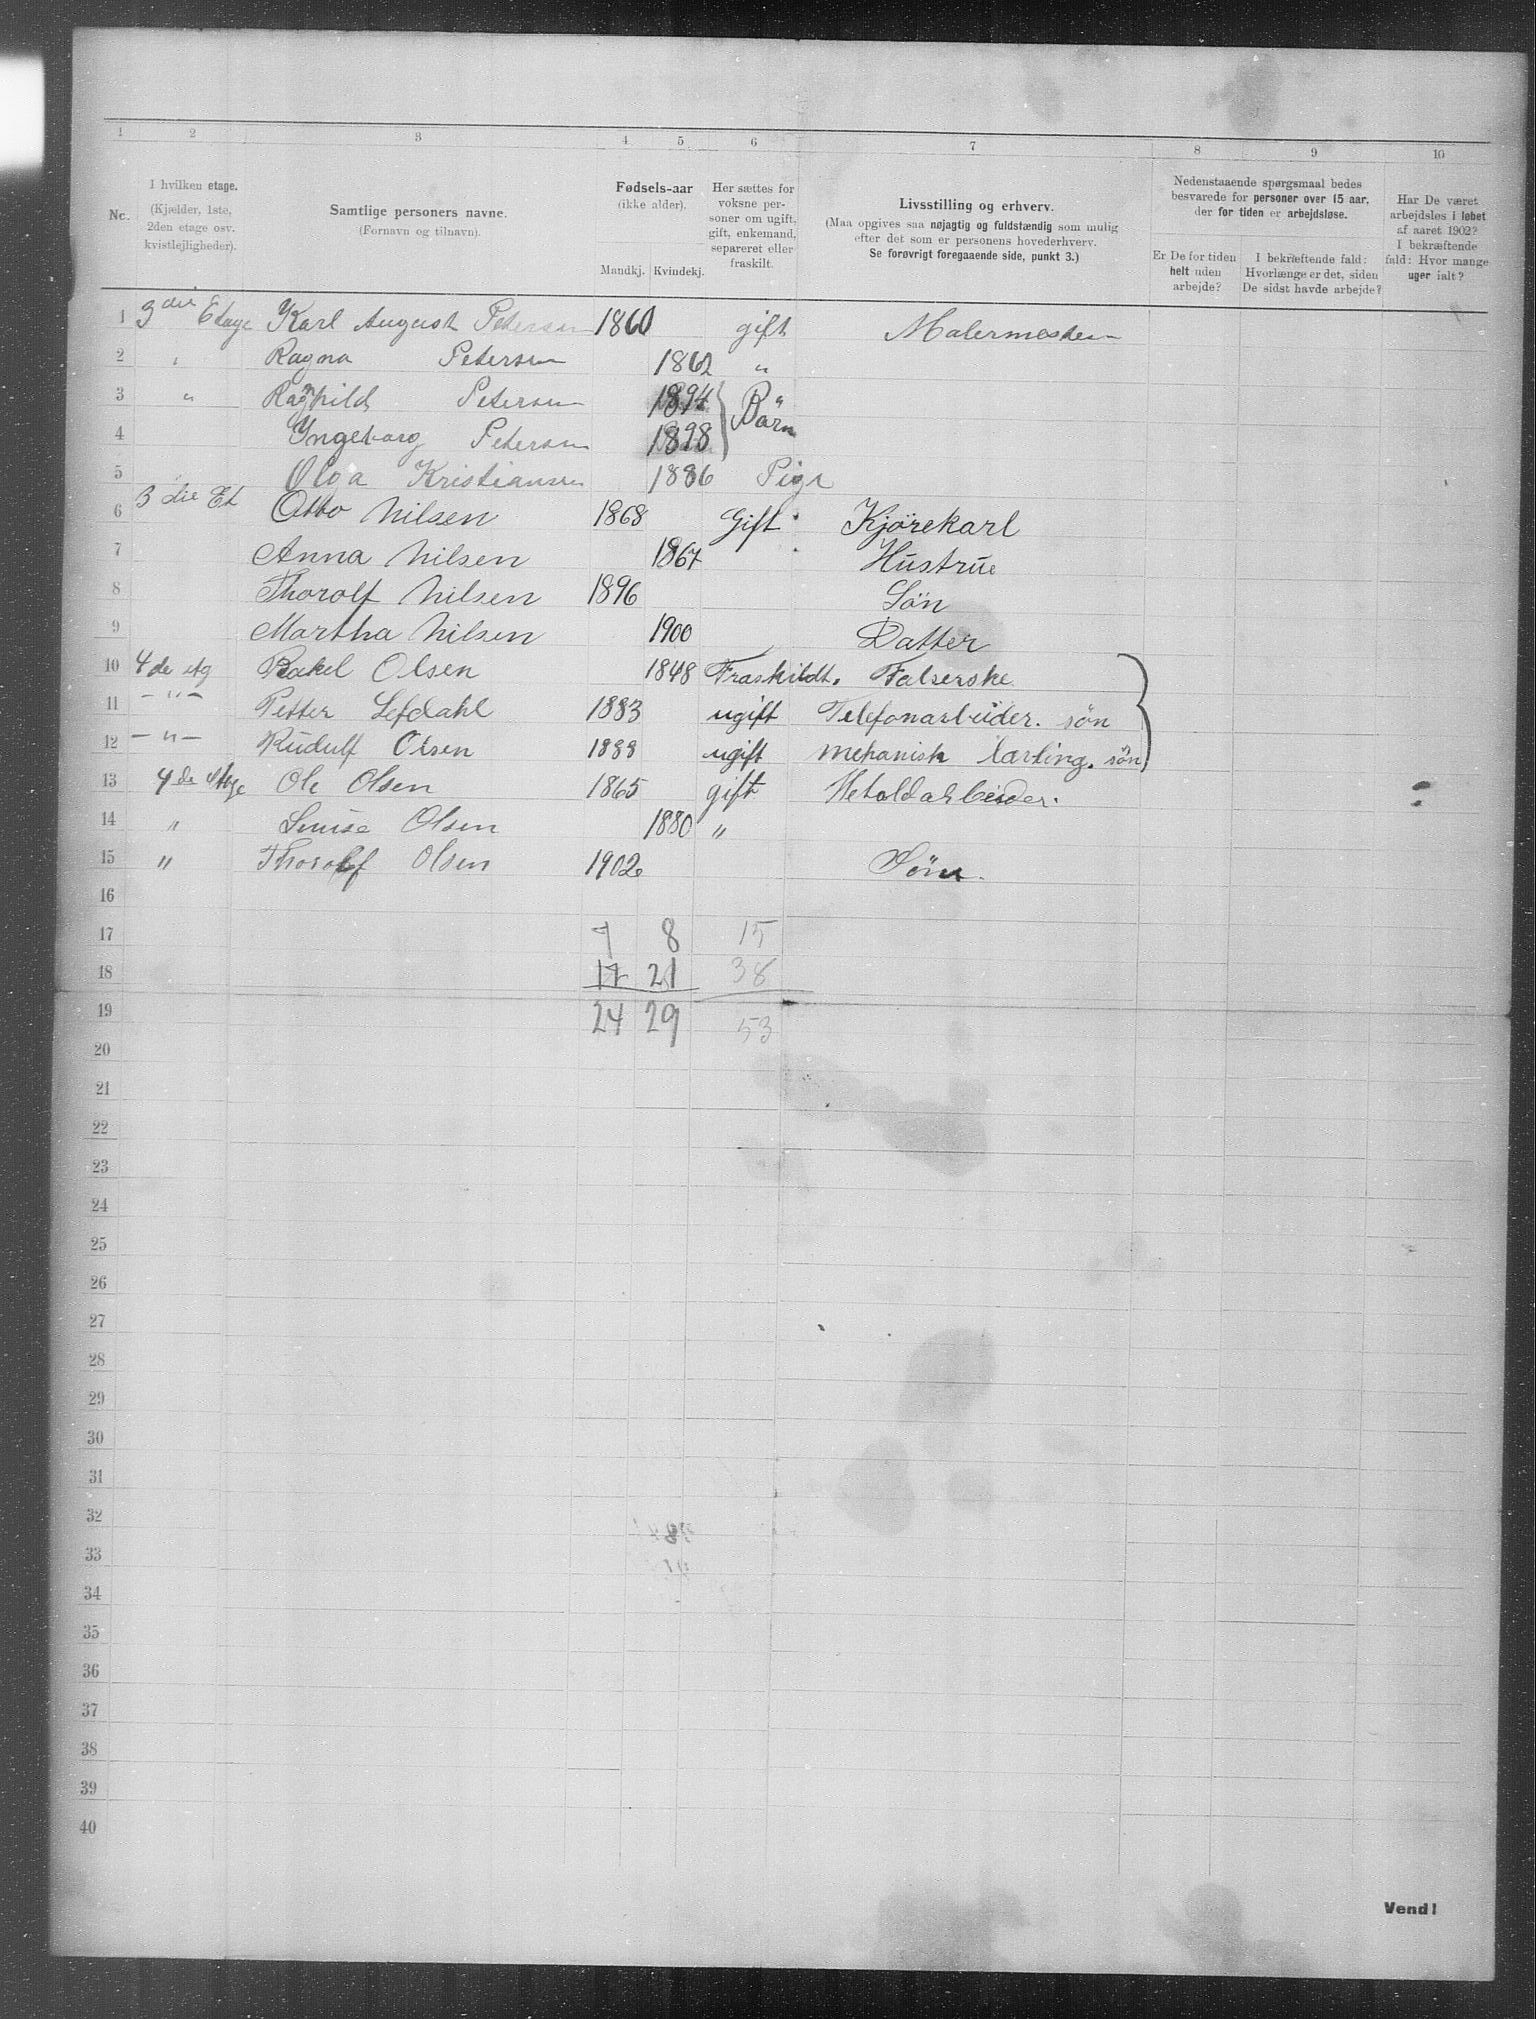 1 2 3 4 5 6 7 8 9 10
No. I hvilken etage. (Kjælder, 1ste, 2den etage osv. kvistlejligheder).
Samtlige personers navne. (Fornavn og tilnavn).
Fødsels-aar (ikke alder). Mandkj. Kvindekj.
Her sættes for voksne personer om ugift, gift, enkemand, separeret eller fraskilt.
Livsstilling og erhverv.
(Maa opgives saa nøjagtig og fuldstændig som mulig efter det som er personens hovederhverv.
Se forøvrigt foregaaende side, punkt 3.)
Nedenstaaende spørgsmaal bedes besvarede for personer over 15 aar, der for tiden er arbejdsløse.
Er De for tiden helt uden arbejde?
I bekræftende fald: Hvorlænge er det, siden De sidst havde arbejde?
Har De været arbejdsløs i løbet af aaret 1902? I bekræftende fald: Hvor mange uger ialt?
1 3die Etage Karl August Petersen 1860 gift Malermester
2 " Ragna Petersen 1862 "
3 " Ragnhild Petersen 1894 Børn "
4 Yngeborg Petersen 1898
5 Olga Kristiansen 1886 Pige
6 3die Et Otto Nilsen 1868 Gift Kjørekarl
7 Anna Nilsen 1867 Hustrue
8 Thorolf Nilsen 1896 Søn
9 Martha Nilsen 1900 Datter
10 4de etg Rakel Olsen 1848 Fraskildt. Falserske
11 -"- Petter Lefdahl 1883 ugift Telefonarbeider. søn
12 -"- Rudulf Olsen 1888 ugift mekanisk lærling. søn
13 4de Etge Ole Olsen 1865 gift
14 " Louise Olsen 1880 "
15 " Thorolf Olsen 1902 Søn.
16
17 7 8 15
18 17 21 38
19 24 29 53
20
21
22
23
24
25
26
27
28
29
30
31
32
33
34
35
36
37
38
39
40
Vend!